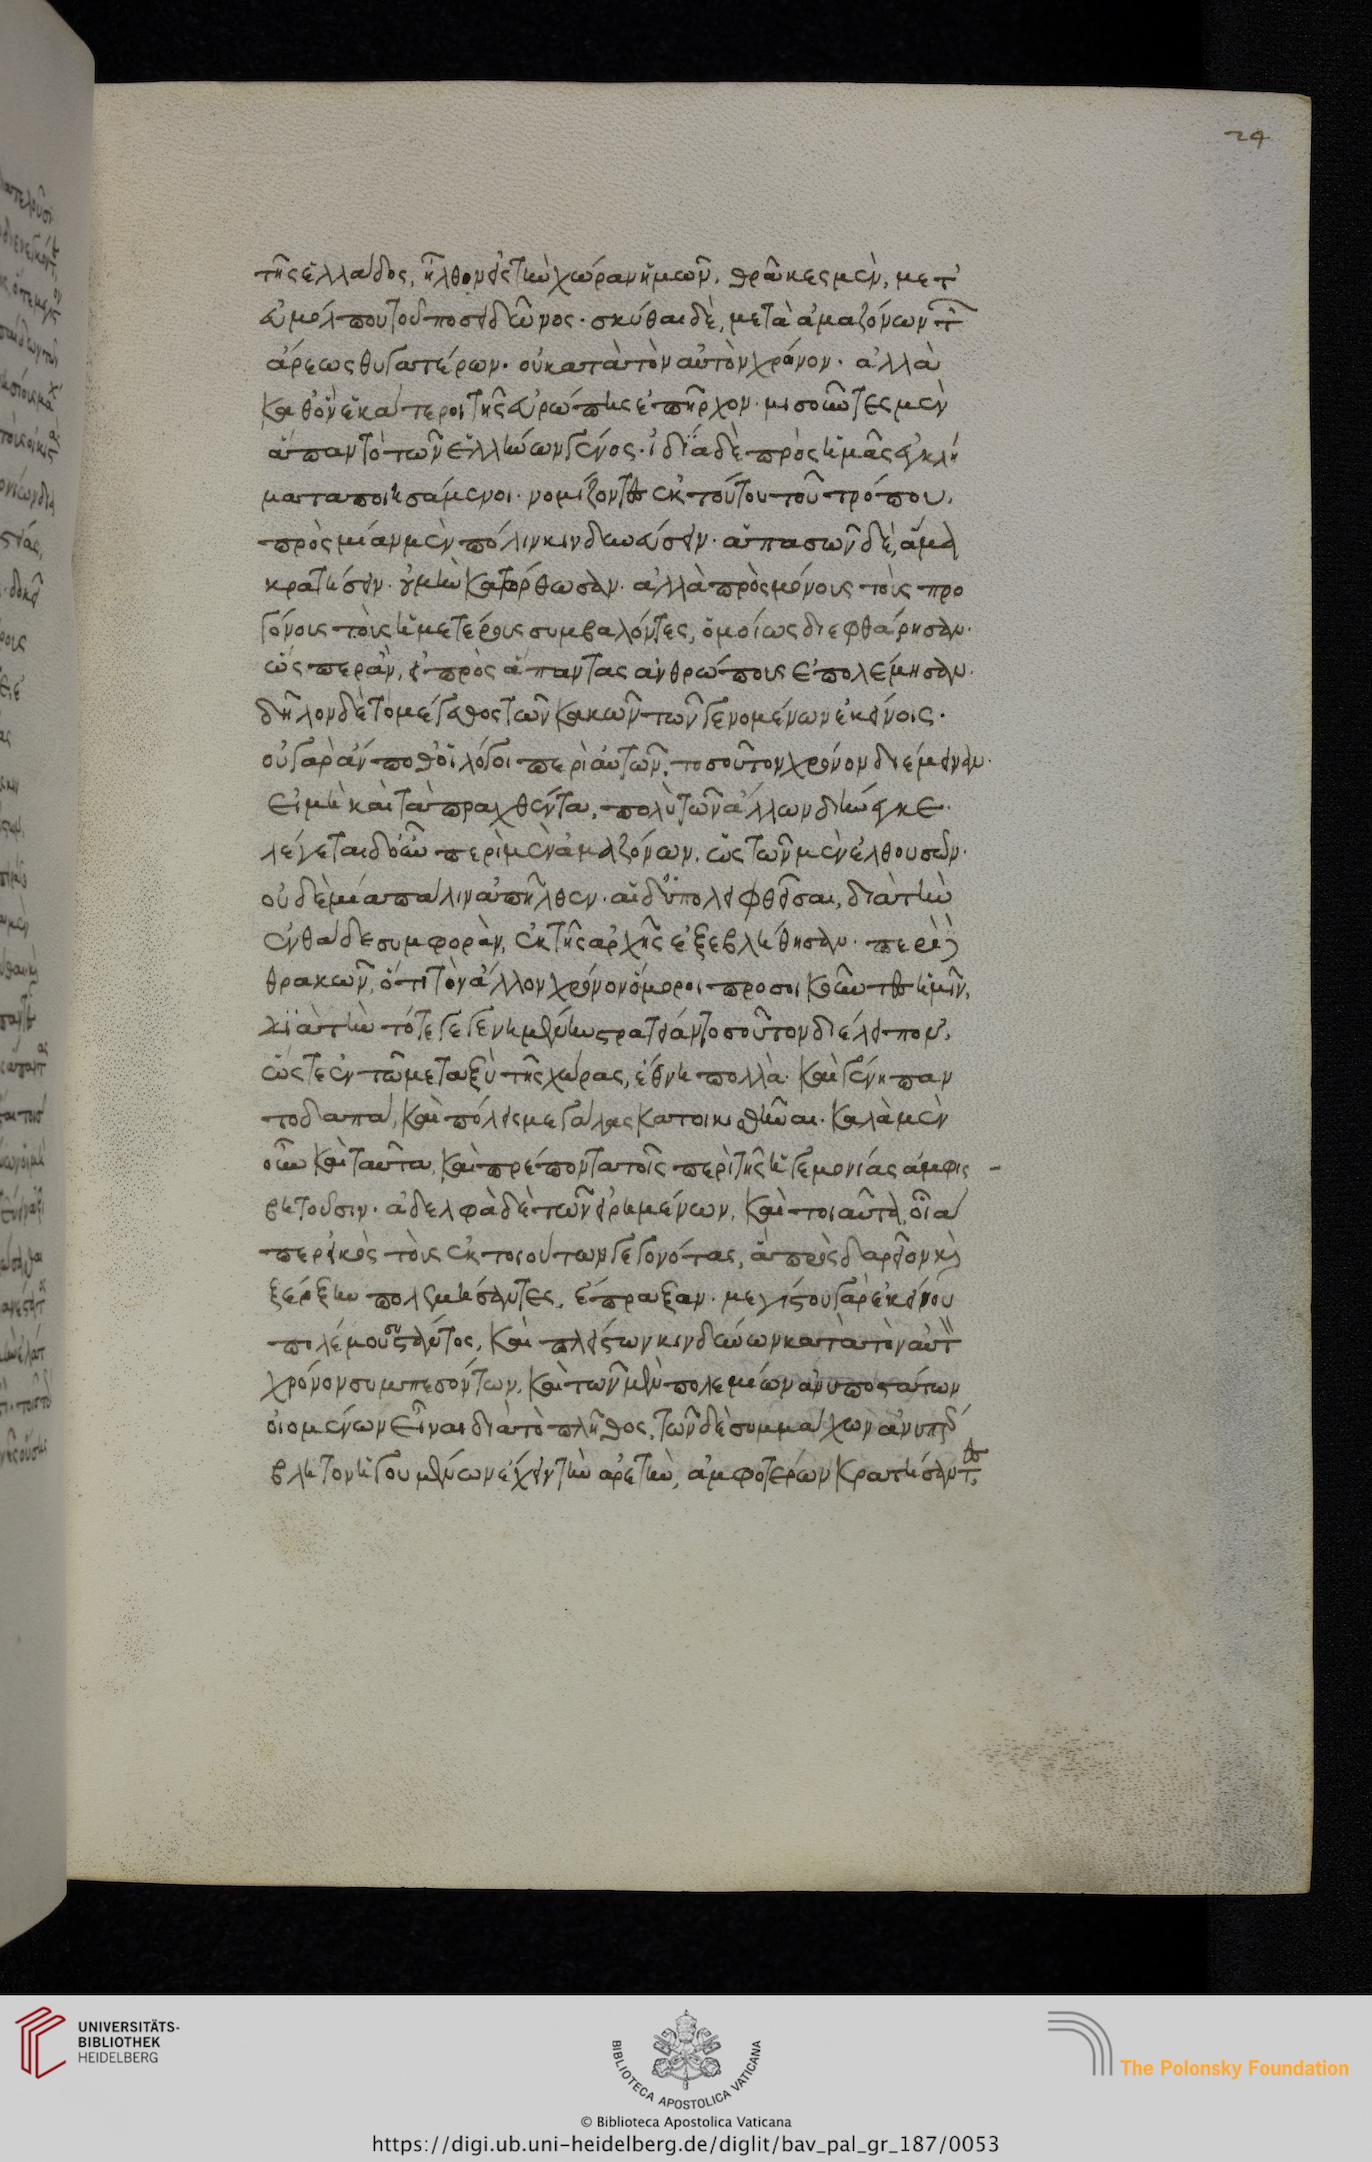 24
τῆς ἑλλάδος, ἦλθον εἰς τὴν χώραν ἡμῶν. θρᾶκες μὲν, μετ'
εὐμόλπου τοῦ ποσειδῶνος· σκύθαι δὲ, μετὰ ἀμαζόνων τῶν
ἄρεως θυγατέρων· οὐ κατὰ τὸν αὐτὸν χρόνον· ἀλλὰ
καθ' ὃν ἑκάτεροι τῆς εὐρώπης ἐπῆρχον· μισοῦντες μὲν
ἅπαν τὸ τῶν ἑλλήνων γένος· ἰδίᾳ δὲ πρὸς ἡμᾶς ἐγκλή
ματα ποιησάμενοι· νομίζοντες ἐκ τούτου τοῦ τρόπου,
πρὸς μίαν μὲν πόλιν κινδυνεύσειν· ἁπασῶν δὲ, ἅμα
κρατήσειν· οὐ μὴν κατόρθωσαν· ἀλλὰ πρὸς μόνους τοὺς προ
γόνους τοὺς ἡμετέρους συμβαλόντες, ὁμοίως διεφθάρησαν·
ὥσπερ ἂν, εἰ πρὸς ἅπαντας ἀνθρώπους ἐπολέμησαν·
δῆλον δὲ τὸ μέγεθος τῶν κακῶν τῶν γενομένων ἐκείνοις·
οὐ γὰρ ἄν ποθ' οἱ λόγοι περὶ αὐτῶν, τοσοῦτον χρόνον διέμειναν·
εἰ μὴ καὶ τὰ πραχθέντα, πολὺ τῶν ἄλλων διήνεγκε·
λέγεται δ' οὖν περὶ μὲν ἀμαζόνων, ὡς τῶν μὲν ἐλθουσῶν·
οὐδὲ μία πάλιν ἀπῆλθεν· αἱ δ' ὑπολειφθεῖσαι, διὰ τὴν
ἐνθάδε συμφορὰν, ἐκ τῆς ἀρχῆς ἐξεβλήθησαν· περὶ δὲ
θρακῶν, ὅτι τὸν ἄλλον χρόνον ὅμοροι προσοικοῦντες ἡμῖν,
διὰ τὴν τότε γεγενημένην στρατείαν τοσοῦτον διέλειπον,
ὥστε ἐν τῶ μεταξὺ τῆς χώρας, ἔθνη πολλὰ· καὶ γένη παν
τοδαπὰ, καὶ πόλεις μεγάλας κατοικισθῆναι· καλὰ μὲν
οὖν καὶ ταῦτα, καὶ πρέποντα τοῖς περὶ τῆς ἡγεμονίας ἀμφισ -
βητοῦσιν· ἀδελφὰ δὲ τῶν εἰρημένων, καὶ τοιαῦτα, οἷα
περ εἰκὸς τοὺς ἐκ τοιούτων γεγονότας, ἃ πρὸς δαρεῖον καὶ
ξέρξην πολεμήσαντες, ἔπραξαν· μεγίστου γὰρ ἐκείνου
πολέμου συστάντος, καὶ πλείστων κινδύνων κατὰ τὸν αὐτὸν
χρόνον συμπεσόντων, καὶ τῶν μὲν πολεμίων ἀνυποστάτων
οἰομένων εἶναι διὰ τὸ πλῆθος, τῶν δὲ συμμάχων ἀνυπέρ
βλητον ἡγουμένων ἔχειν τὴν ἀρετὴν, ἀμφοτέρων κρατήσαντες,
UNIVERSITÄTS-
BIBLIOTHEK
HEIDELBERG
BIBLIOTECA APOSTOLICA VATICANA
The Polonsky Foundation
© Biblioteca Apostolica Vaticana
https://digi.ub.uni-heidelberg.de/diglit/bav_pal_gr_187/0053